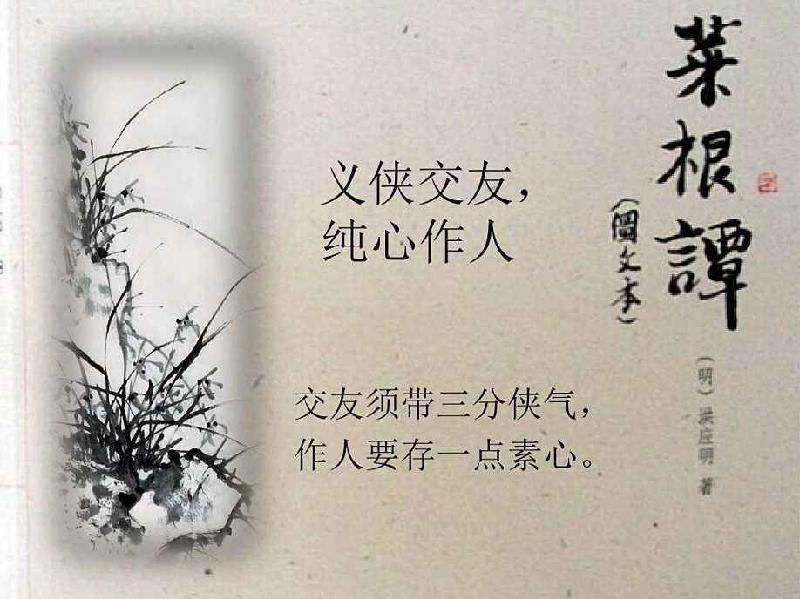 菜根譚
(圖文本)
(明)洪应明 著
义侠交友，
纯心作人
交友须带三分侠气，
作人要存一点素心。